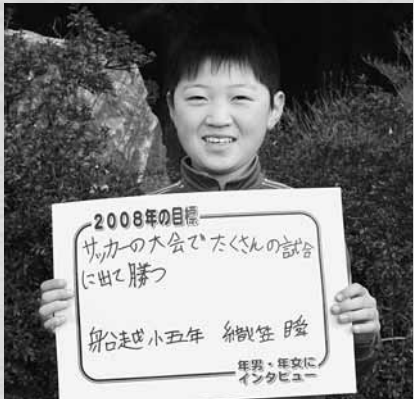 2008年の目標
サッカーの大会でたくさんの試合
に出て勝つ
船越小五年 織笠 瞬
年男・年女に
インタビュー